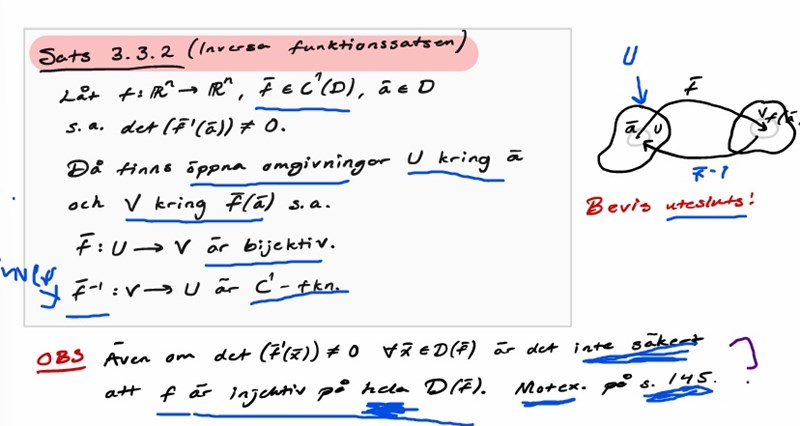 Sats 3.3.2 (Inversa funktionssatsen)
Låt f: ℝⁿ → ℝⁿ, f̄ ∈ C¹(D), ā ∈ D
s.a. det(f̄'(ā)) ≠ 0.
Då finns öppna omgivningar U kring ā
och V kring f̄(ā) s.a.
f̄: U → V är bijektiv.
invers
f̄⁻¹: V → U är C¹-fkn.
U
f̄
ā U
V f(ā)
f̄⁻¹
Bevis utesluts!
OBS Även om det(f̄'(x̄)) ≠ 0 ∀x̄ ∈ D(f̄) är det inte säkert
att f är injektiv på hela D(f̄). Motex. på s. 145.